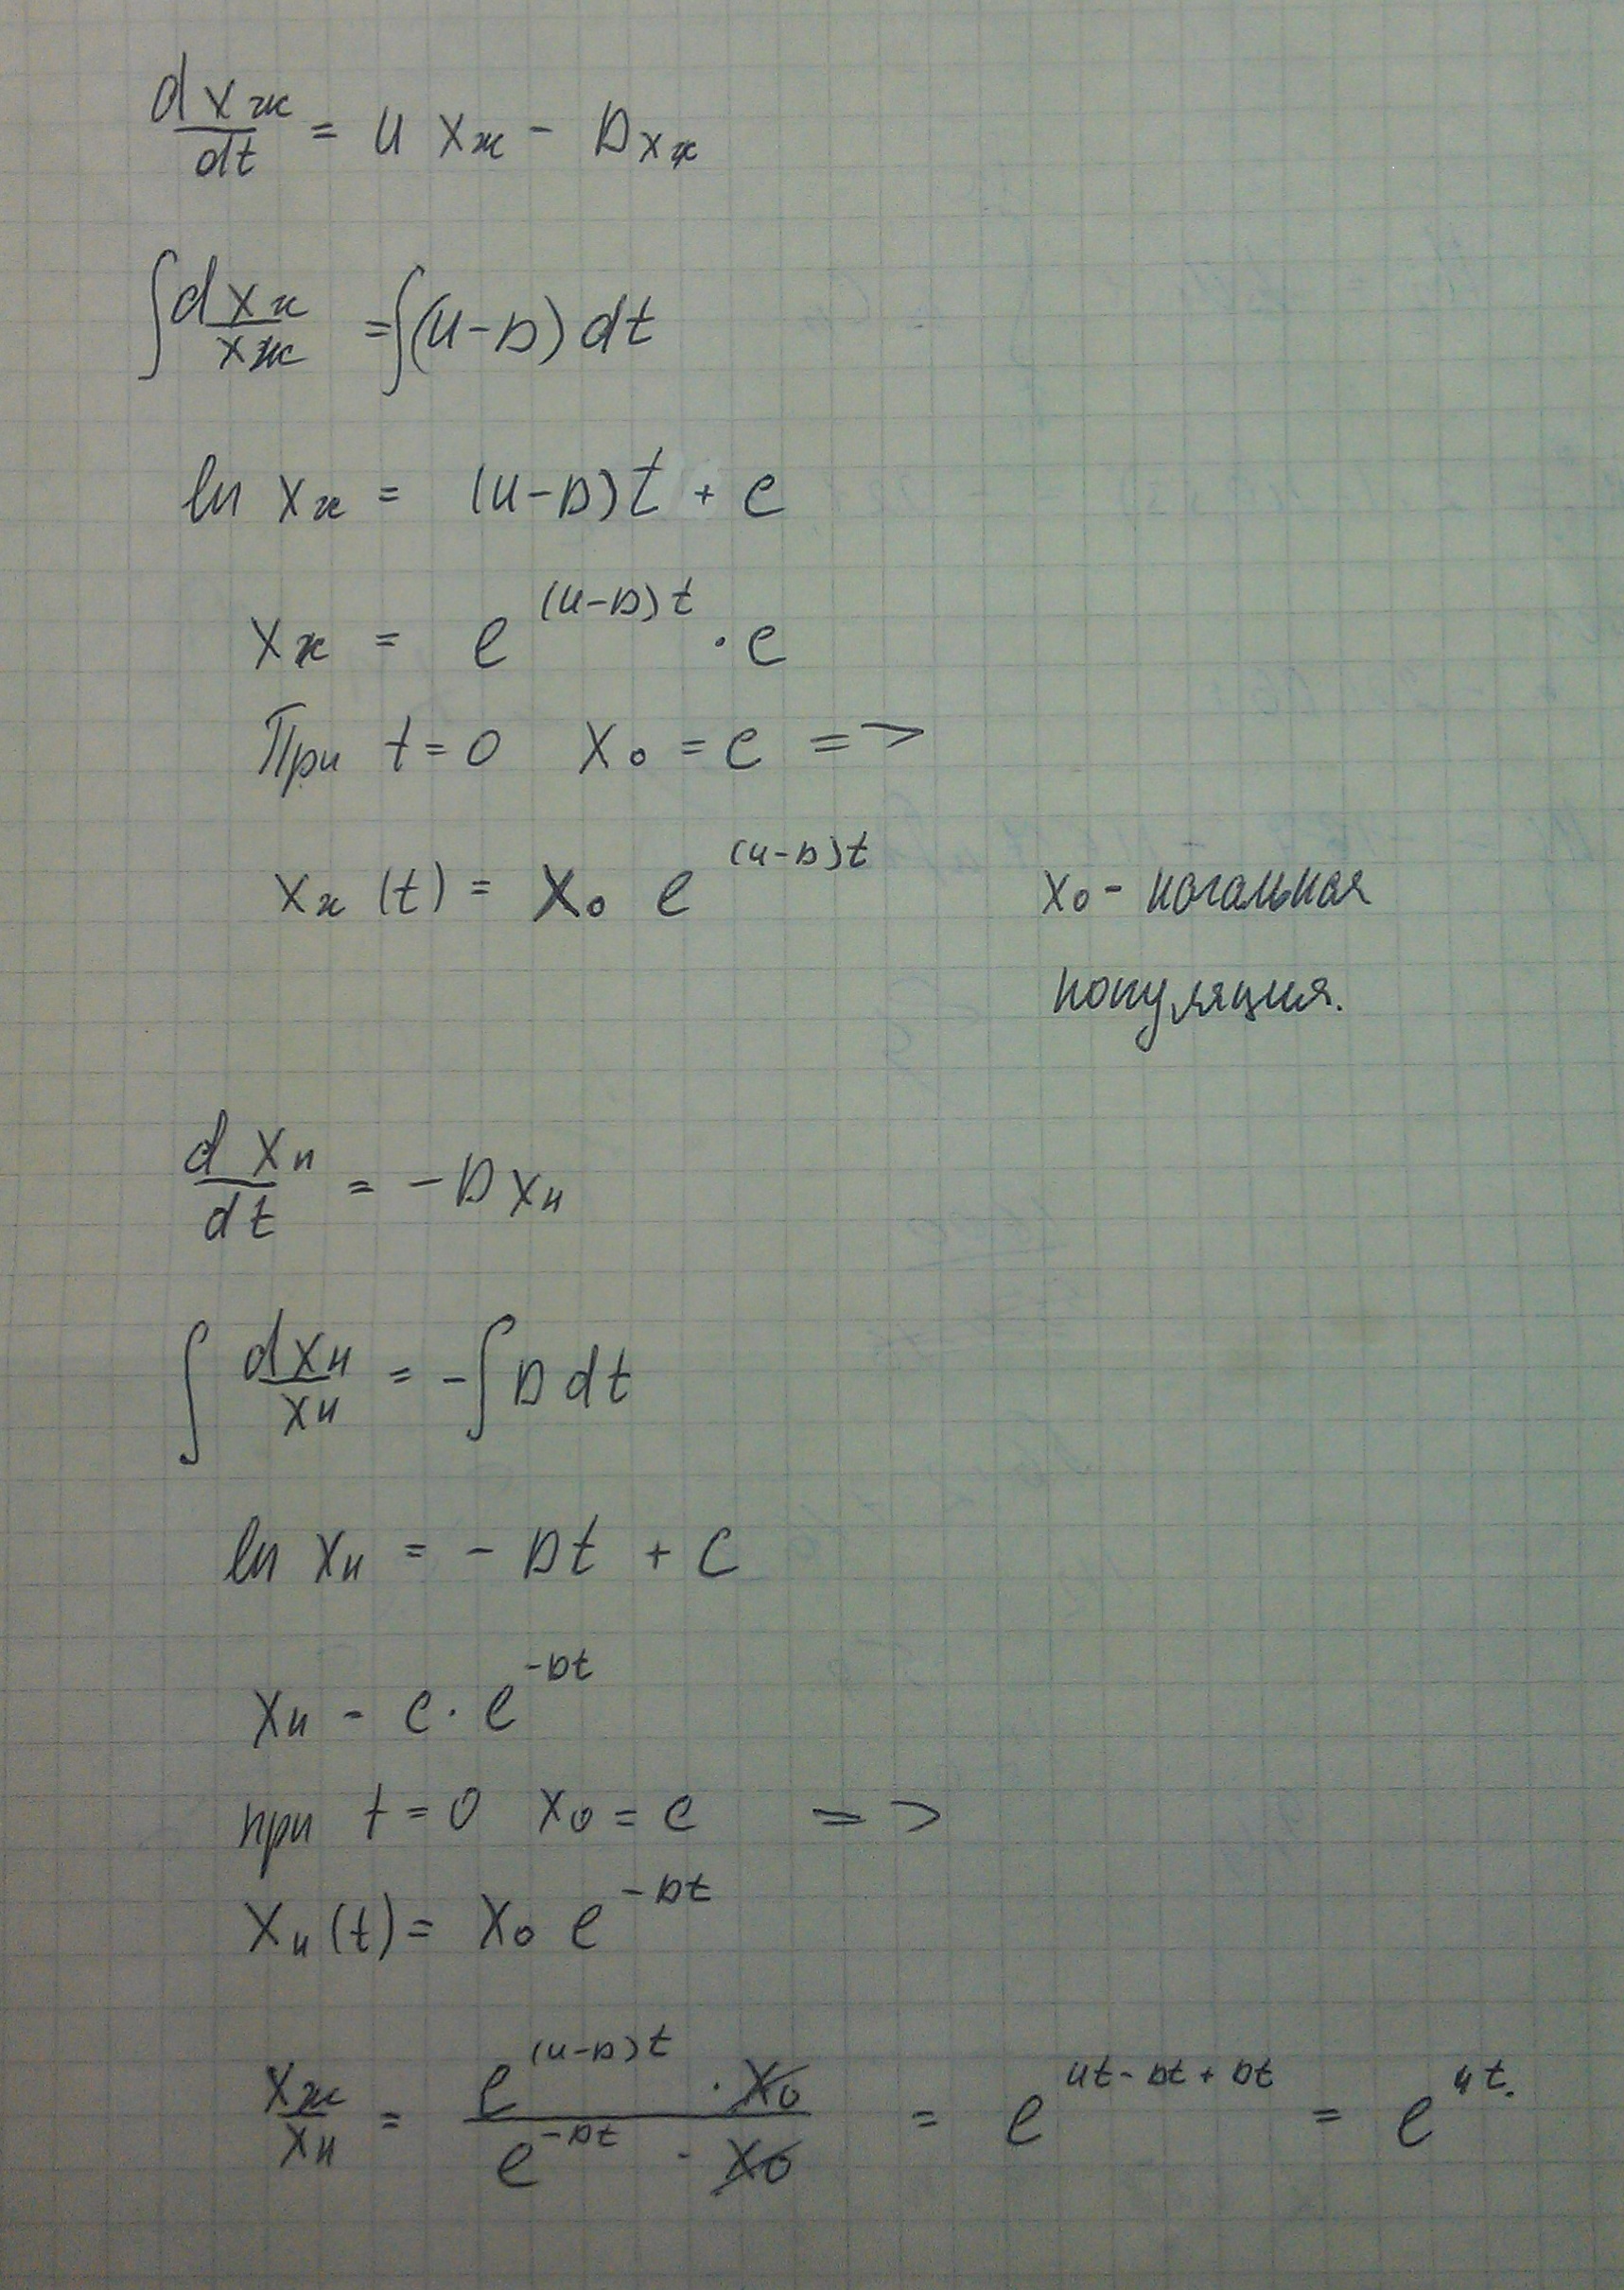 dxж/dt = u xж - D xж
∫ dxж/xж = ∫(u-D) dt
ln xж = (u-D)t + c
xж = e^(u-D)t · c
При t=0 x₀ = c =>
xж (t) = x₀ e^(u-D)t x₀ - начальная
популяция.
d xн/dt = -D xн
∫ dxн/xн = -∫ D dt
ln xн = - Dt + C
xн - c · e^-Dt
при t=0 x₀ = c =>
xн (t) = x₀ e^-Dt
xж/xн = e^(u-D)t · x₀ / e^-Dt · x₀ = e^ut-Dt+Dt = e^ut.